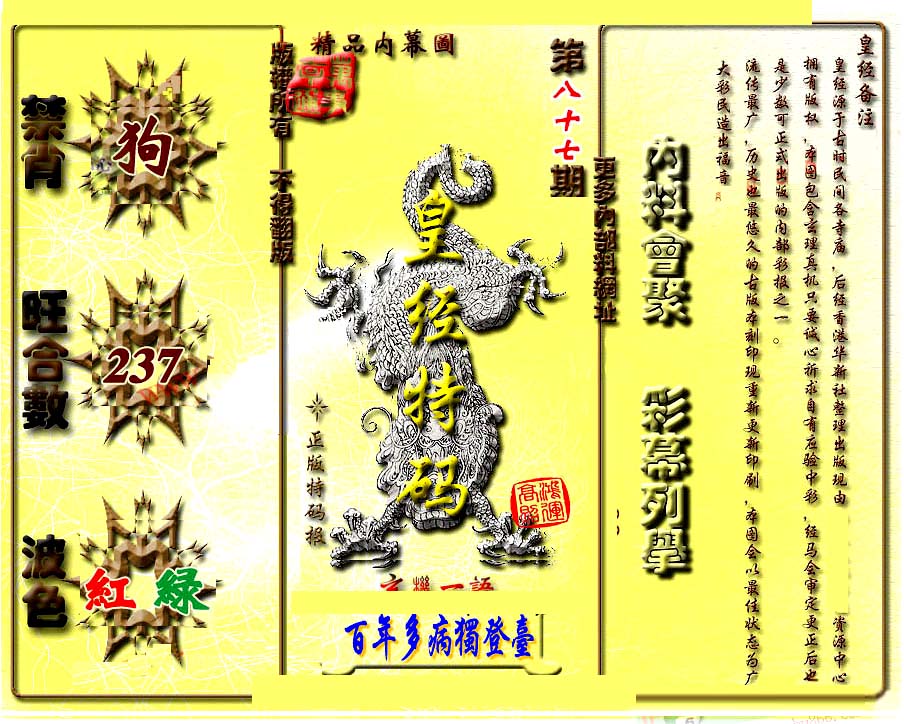 皇经备注
皇经源于古时民间各寺庙，后经香港华新社整理出版现由 资源中心
拥有版权，本图包含玄理真机只要诚心祈求自有应验中彩，经马会审定更正后也
是少数可正式出版的内部彩报之一。
流传最广，历史也最悠久的古版本刻印现重新更新印刷，本图会以最佳状态为广
大彩民造出福音
内料會聚
彩幕列擧
更多內部料網址
第八十七期
精品内幕圖
皇经特码
正版特码报
鴻運
高照
玄機一語
百年多病獨登臺
版權所有 不得翻版
禁肖
狗
旺合數
237
波色
紅 綠